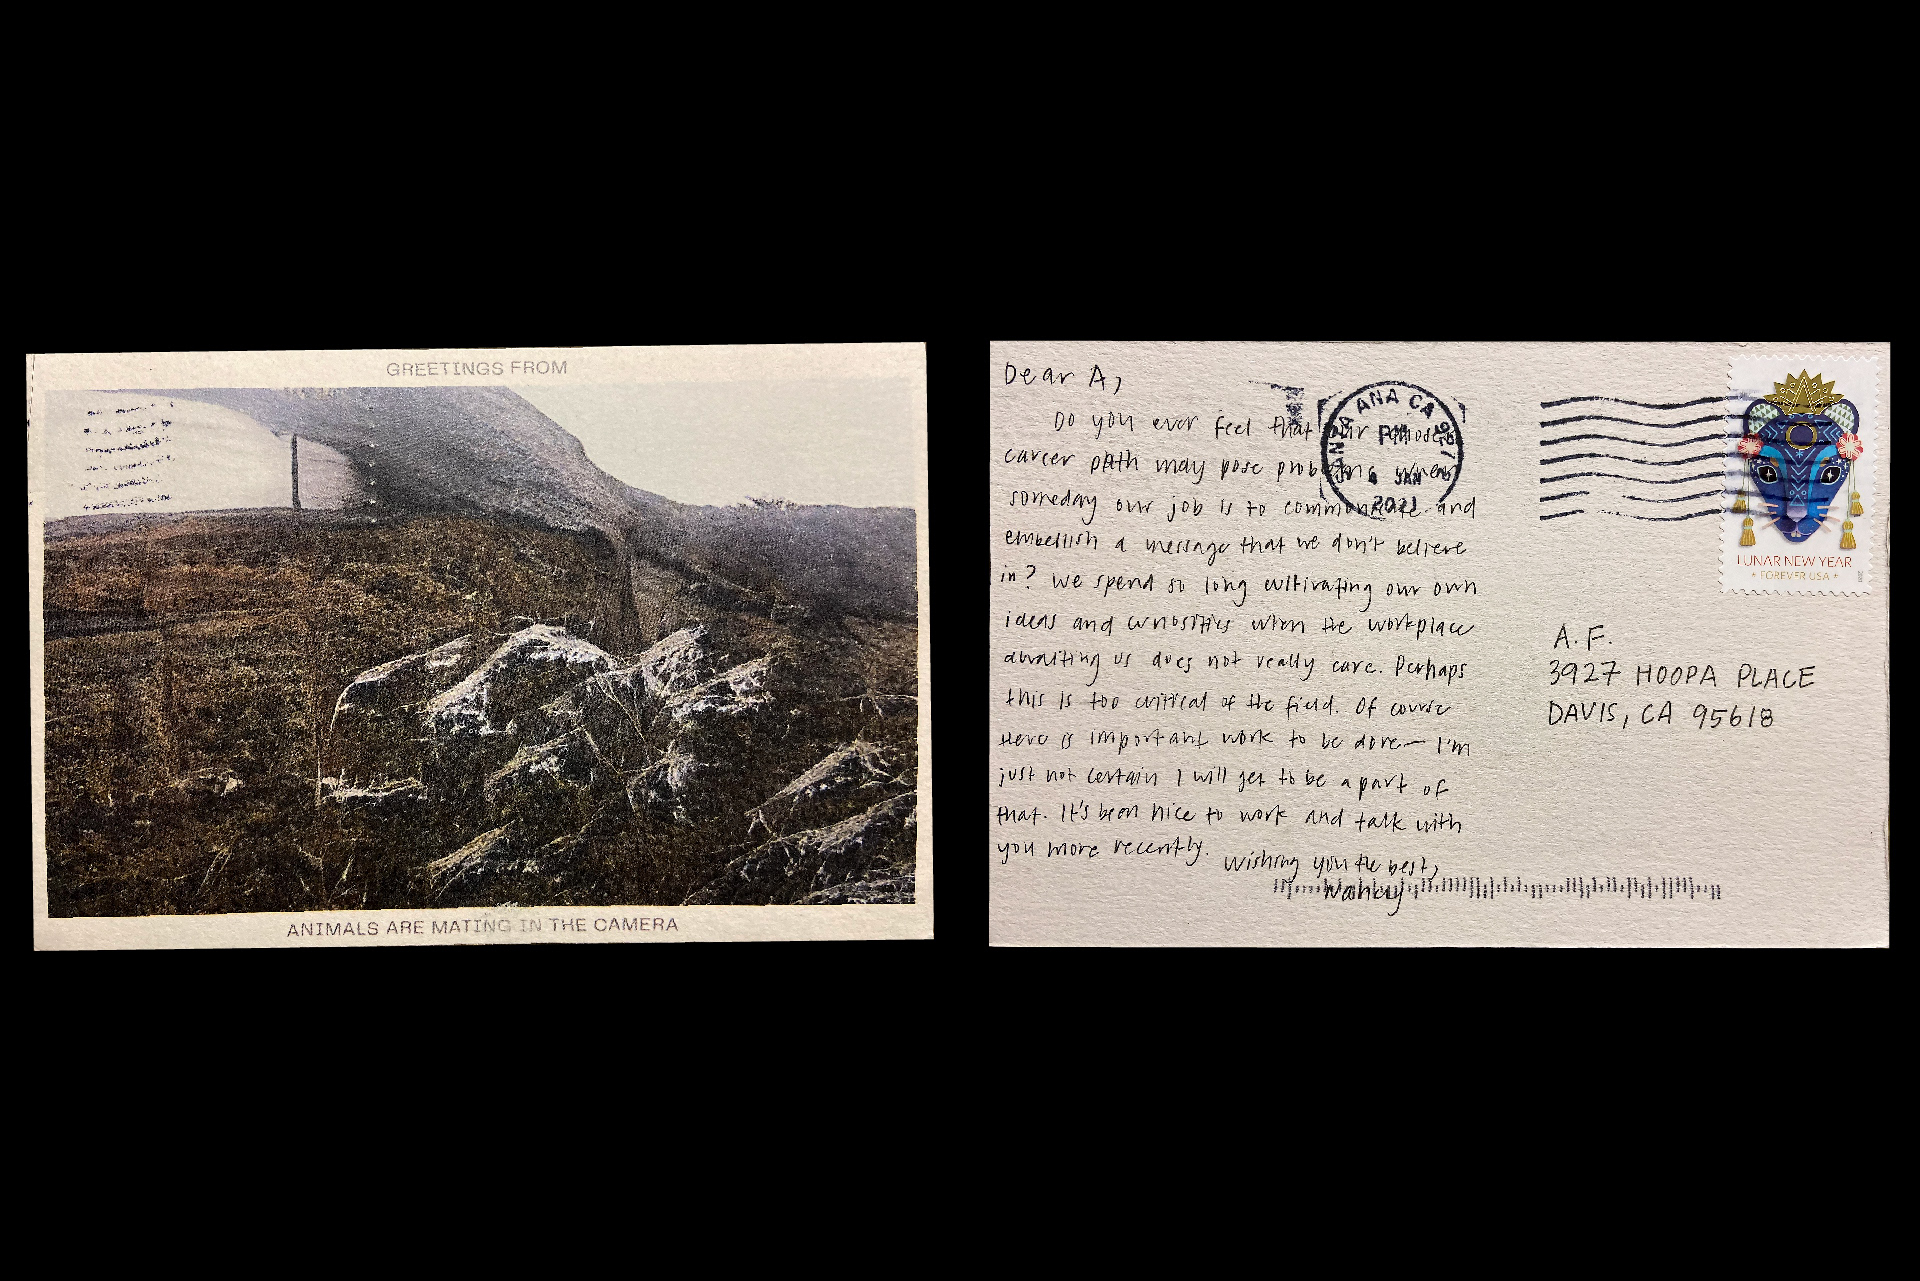 GREETINGS FROM
ANIMALS ARE MATING IN THE CAMERA
Dear A,
Do you ever feel that our
career path may pose problems when
someday our job is to communicate and
embellish a message that we don't believe
in? We spend so long cultivating our own
ideas and curiosities when the workplace
awaiting us does not really care. Perhaps
this is too critical of the field. Of course
there is important work to be done— I'm
just not certain I will get to be a part of
that. It's been nice to work and talk with
you more recently.
Wishing you the best,
Nancy
SANTA ANA CA
PM
4 JAN
2021
LUNAR NEW YEAR
FOREVER USA
A.F.
3927 HOOPA PLACE
DAVIS, CA 95618